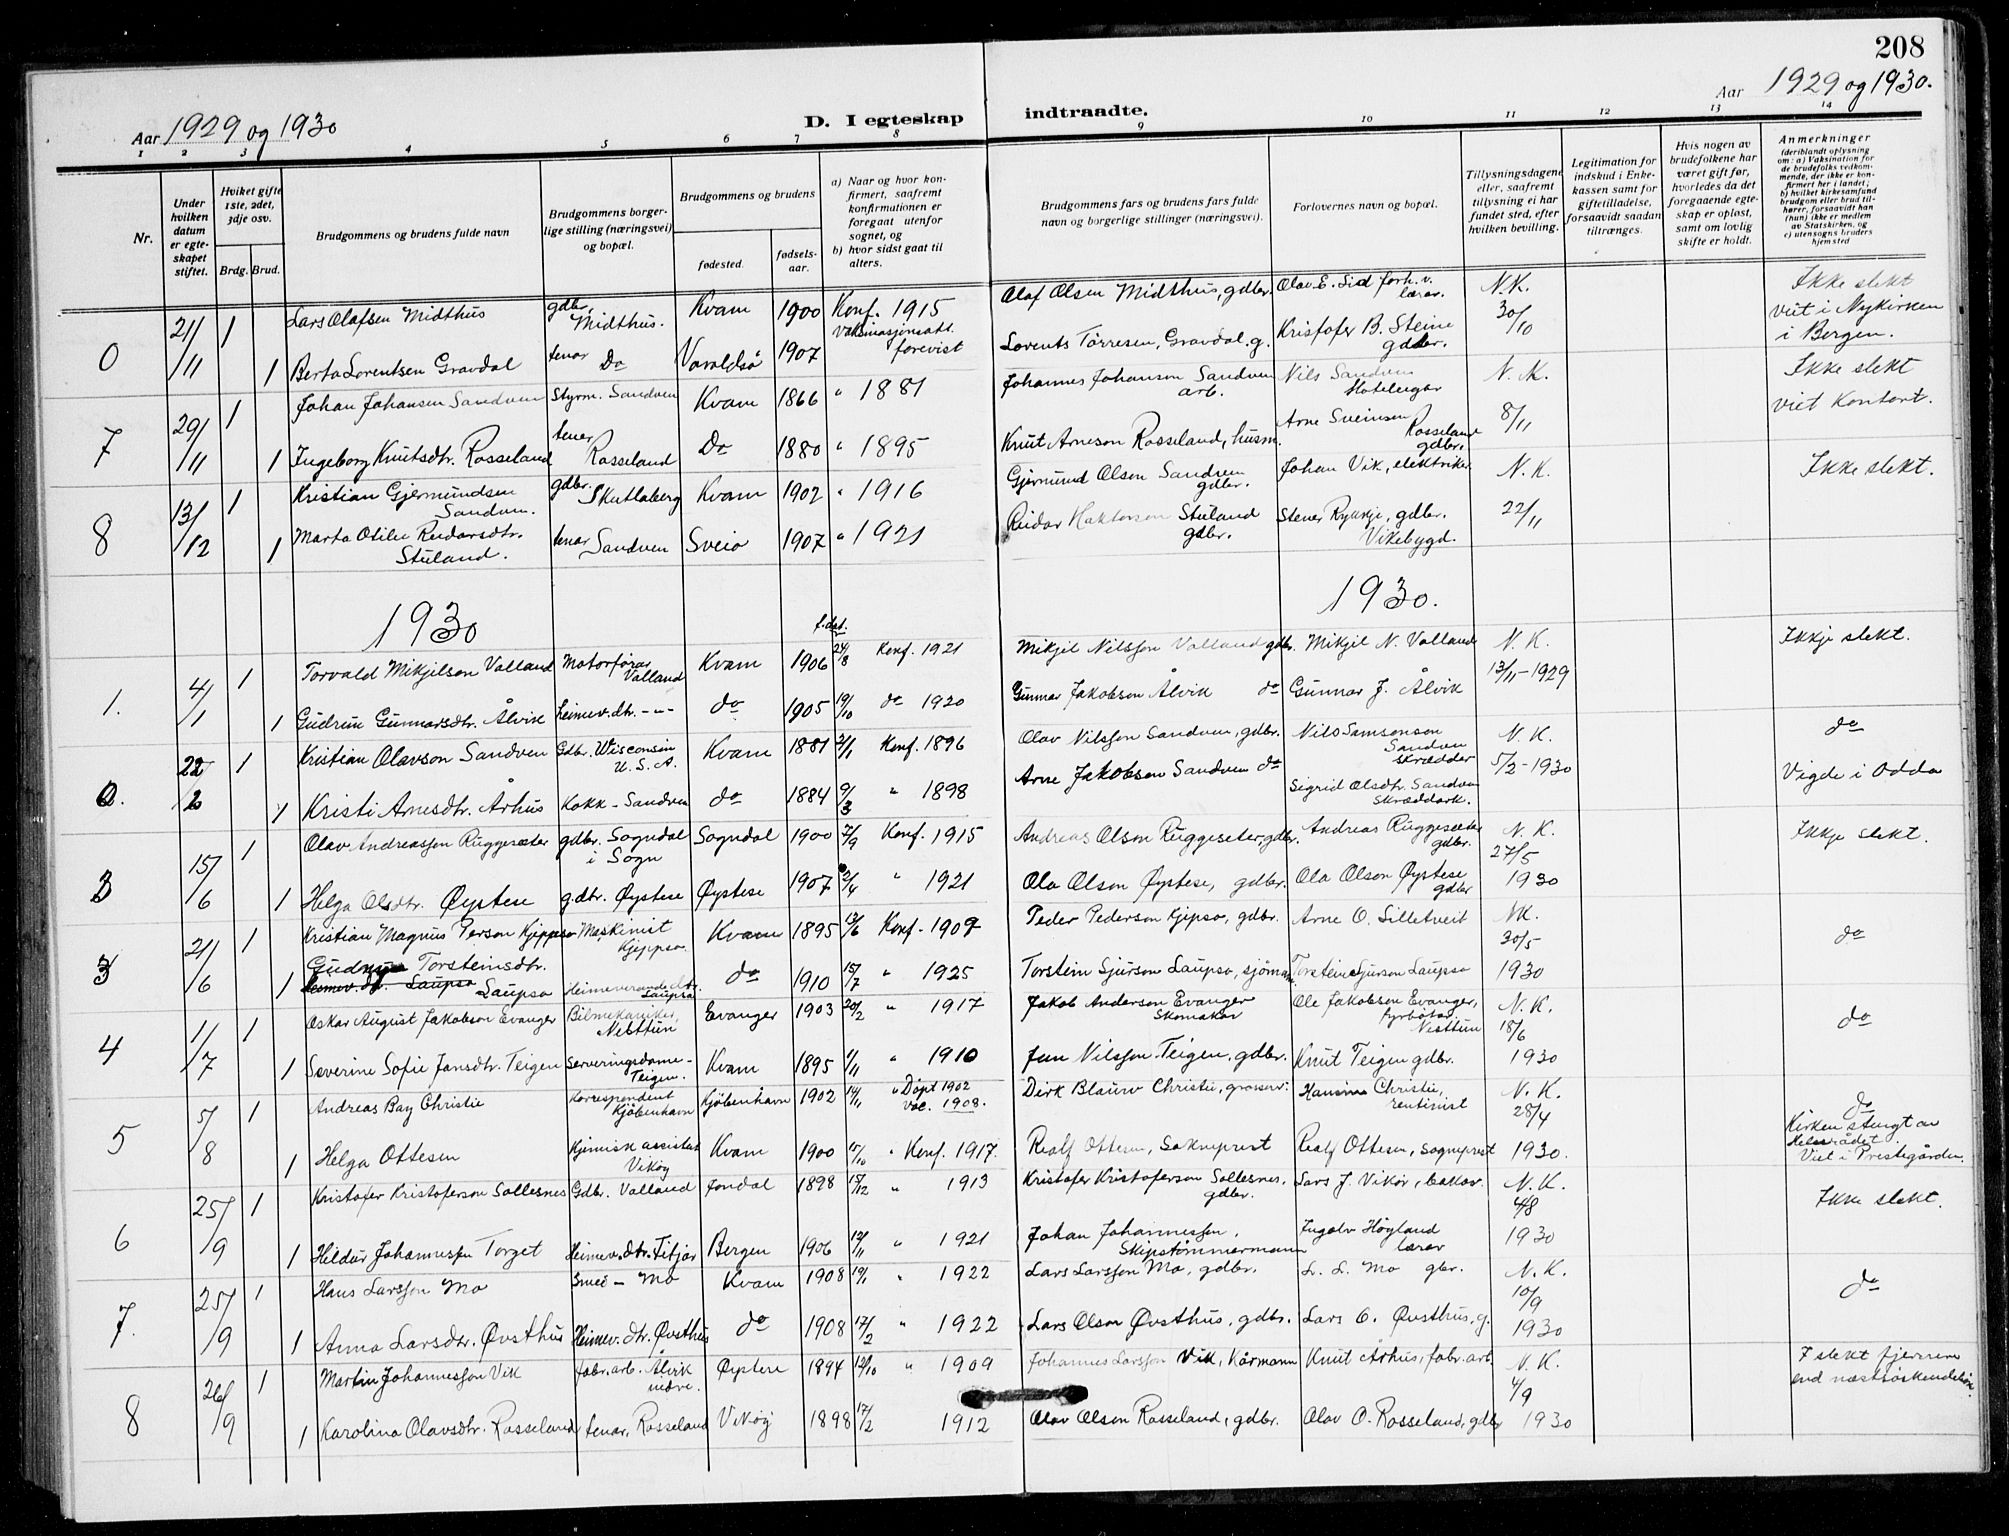 208
Aar 1929 og 1930
D. I egteskap
indtraadte.
Aar 1929 og 1930.
1 2 3 4 5 6 7 8 9 10 11 12 13 14
Nr.
Under
hvilken
datum
er egte-
skapet
stiftet.
Hvilket gifte
1ste, 2det,
3dje osv.
Brdg. Brud.
Brudgommens og brudens fulde navn
Brudgommens borger-
lige stilling (næringsvei)
og bopæl.
Brudgommens og brudens
fødested.
fødsels-
aar.
a) Naar og hvor kon-
firmert, saafremt
konfirmationen er
foregaat utenfor
sognet, og
b) hvor sidst gaat til
alters.
Brudgommens fars og brudens fars fulde
navn og borgerlige stillinger (næringsvei).
Forlovernes navn og bopæl.
Tillysningsdagene
eller, saafremt
tillysning ei har
fundet sted, efter
hvilken bevilling.
Legitimation for
indskud i Enke-
kassen samt for
giftetilladelse,
forsaavidt saadan
tiltrænges.
Hvis nogen av
brudefolkene har
været gift før,
hvorledes da det
foregaaende egte-
skap er opløst,
samt om lovlig
skifte er holdt.
Anmerkninger
(deriblandt oplysning
om: a) Vaksination for
de brudefolks vedkom-
mende, der ikke er kon-
firmert her i landet;
b) hvilket kirkesamfund
brudgom eller brud til-
hører, forsaavidt han
(hun) ikke er medlem
av Statskirken, og
c) utensogns bruders
hjemsted
0 21/11 1 Lars Olafsen Midthus gdbr. Midthus. Kvam 1900 Konf. 1915 Olaf Olsen Midthus, gdbr. Olav E. Sid forh.v. lærar. N.K. Ikke slekt
vaksinasjonsatt. forevist 30/10 viet i Nykirken
1 Berta Lorentsen Gravdal tenar Do Varaldsö 1907 Lorents Törresen, Gravdal. g. Kristofer B. Steine gdbr. i Bergen.
7 29/11 1 Johan Johansen Sandven Styrm. Sandven Kvam 1866 " 1881 Johannes Johanson Sandven arb. Nils Sandven Hoteleigar N.K. Ikke slekt
1 Ingeborg Knutsdtr. Rosseland tener Rosseland Do 1880 " 1895 Knut Arneson Rosseland, husm. Arne Sveinsen Rosseland gdbr. 8/11 viet Kontort.
8 13/12 1 Kristian Gjermundsen Sandven. gdbr. Skutlaberg Kvam 1902 " 1916 Gjermund Olson Sandven gdbr. Johan Vik, elektriker N.K. Ikke slekt.
1 Marta Otilie Reidarsdtr. Stuland. tenar Sandven Sveio 1907 " 1921 Reidar Stuland gdbr. Stener gdbr. Vikebygd. 22/11
1930 1930.
f.dat.
1. 4/1 1 Torvald Mikjelson Valland Motorförar Valland Kvam 1906 24/8 Konf. 1921 Mikjel Nilsson Valland gdbr. Mikjel N. Valland N.K. Ikkje slekt.
1 Gudrun Gunnarsdtr. Ålvik heimev. dtr. - " - do 1905 19/10 do 1920 Gunnar Jakobson Ålvik do Gunnar J. Ålvik 13/11-1929
2. 22/2 1 Kristian Olavson Sandven Gdbr. Wisconsin U.S.A. Kvam 1881 2/1 Konf. 1896 Olav Nilsson Sandven, gdbr. Nils Samsonson Sandven skrædder N.K. do
1 Kristi Arnesdtr. Århus Kokk - Sandven do 1884 9/3 " 1898 Arne Jakobson Sandven do Sigrid Olsdtr. Sandven Skræddark. 5/2-1930 Vigde i Odda
3 15/6 1 Olav Andreasson Ruggesæter gdbr. Sogndal i Sogn Sogndal 1900 7/9 Konf. 1915 Andreas Olson Ruggeseter, gdbr. Andreas Ruggesæter gdbr. N.K. Ikkje slekt.
1 Helga Olsdtr. Øystese gdbr. Øystese Øystese 1907 2/4 " 1921 Ola Olson Øystese, gdbr. Ola Olson Øystese gdbr 27/5 1930
3 21/6 1 Kristian Magnus Person Kjepso Maskinist Kjeppso. Kvam 1895 13/6 Konf. 1909 Peder Pederson Kjepso, gdbr. Arne O. Silletveit NK. do
1 Gudrun Torsteinsdtr. Laupsa Heimeverande dtr. Laupsa do 1910 15/7 " 1925 Torstein Sjurson Laupsa, sjöman. Torstein Sjurson Laupsa 30/5 1930
4 1/7 1 Oskar August Jakobson Evanger Bilmekaniker, Nesttun Evanger 1903 20/2 " 1917 Jakob Anderson Evanger Skomakar Ole Jakobson Evanger, fyrböter. Nesttun N.K. do
1 Severine Sofie Jansdtr. Teigen Serveringsdame - Teigen. Kvam 1895 1/11 " 1910 Jan Nilsson Teigen, gdbr. Knut Teigen gdbr. 18/6 1930
5 5/8 1 Andreas Bay Christie Korrespondent Kjöbenhavn Kjöbenhavn 1902 14/11 " Döpt 1902 vac. 1908. Dirk Blauw Christie, grosserer Christie, rentinist N.K. do
1 Helga Ottesen Kjemisk assistent Vikøy Kvam 1900 15/10 " Konf. 1917. Realf Ottesen, Soknprest Realf Ottesen, sogneprest 28/4 1930. Kirken stengt av Helserådet. Viet i Prestegården.
6 25/9 1 Kristofer Kristoferson Sollesnes Gdbr. Valland Jondal 1898 15/12 " 1913 Kristofer Kristoferson Sollesnes, gdbr. Lars J. Vikør, bakar. N.K. Ikke slekt.
1 Hildur Johannessen Torget Heimev. dtr. Fitjar Bergen 1906 12/11 " 1921 Johan Johannessen, Skipstømmermann Ingolv Høyland lærar 4/8 1930
7. 25/9 1 Hans Larsson Mo Smed - Mo Kvam 1908 19/1 " 1922 Lars Larsson Mo, gdbr. L. L. Mo gbr. N.K. do
1 Anna Larsdtr. Øvsthus Heimev. dtr. Øvsthus do 1908 17/2 " 1922 Lars Olson Øvsthus, gdbr. Lars O. Øvsthus, g. 10/9 1930
8 26/9 1 Martin Johannesson Vik fabr. arb. Ålvik nedre. Øystese 1894 12/10 " 1909 Johannes Larsson Vik, Kårmann Knut Århus, fabr. arb. N.K. I slekt fjernere end næstsöskendebörn.
1 Karolina Olavsdtr. Rosseland tenar, Rosseland Vikøy 1898 17/2 1912 Olav Olson Rosseland, gdbr. Olav O. Rosseland, gdbr 4/9 1930